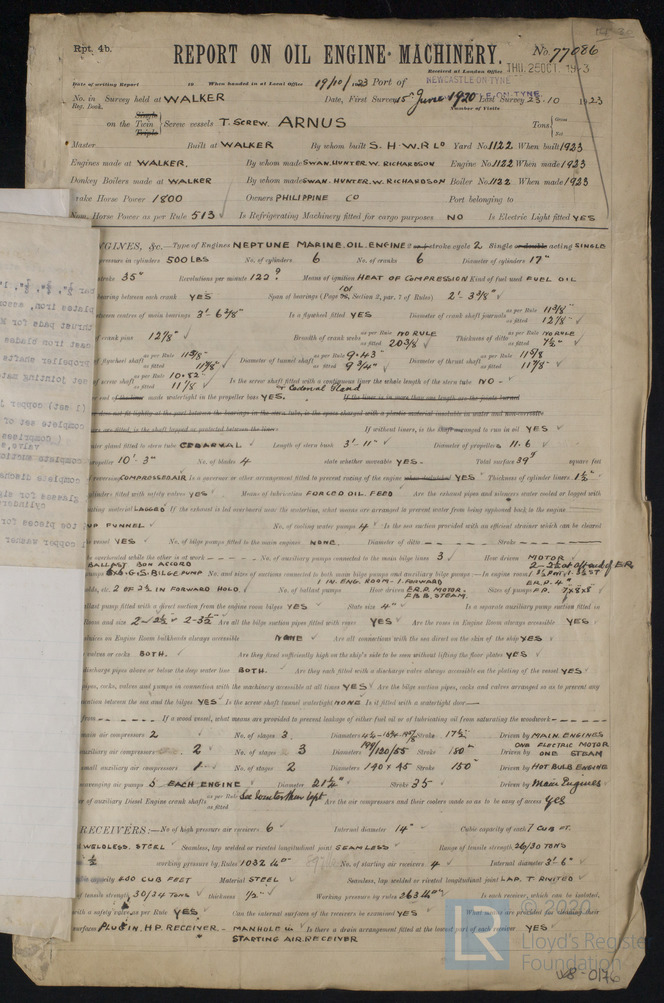 Rpt. 4b.
REPORT ON OIL ENGINE MACHINERY. No. 77086
Received at London Office THU. 25 OCT. 1923
Date of writing Report 19 When handed in at Local Office 19/10/1923 Port of NEWCASTLE-ON-TYNE
No. in Survey held at WALKER Date, First Survey 15 June 1920 Last Survey 23.10 1923
Reg. Book. Number of Visits
on the Single Twin Triple Screw vessels T. SCREW. ARNUS Tons Gross Net
Master Built at WALKER By whom built S. H. W. R LD Yard No. 1122 When built 1923
Engines made at WALKER. By whom made SWAN. HUNTER. W. RICHARDSON Engine No. 1122 When made 1923
Donkey Boilers made at WALKER By whom made SWAN. HUNTER. W. RICHARDSON Boiler No. 1122 When made 1923
Brake Horse Power 1800 Owners PHILIPPINE CO Port belonging to
Nom. Horse Power as per Rule 513 Is Refrigerating Machinery fitted for cargo purposes NO Is Electric Light fitted YES
ENGINES, &c.—Type of Engines NEPTUNE MARINE OIL ENGINE 2 or 4 stroke cycle 2 Single or double acting SINGLE
pressure in cylinders 500 LBS No. of cylinders 6 No. of cranks 6 Diameter of cylinders 17"
stroke 35" Revolutions per minute 122 ? Means of ignition HEAT OF COMPRESSION Kind of fuel used FUEL OIL
bearing between each crank YES Span of bearings (Page 101, Section 2, par. 7 of Rules) 2'- 3 3/8"
between centres of main bearings 3'- 6 3/8" Is a flywheel fitted YES Diameter of crank shaft journals as per Rule 11 3/8" as fitted 12 1/8"
of crank pins 12 1/8" Breadth of crank webs as per Rule NO RULE as fitted 20 3/8 Thickness of ditto as per Rule NO RULE as fitted 7 1/2"
of flywheel shaft as per Rule 11 3/8" as fitted 11 7/8" Diameter of tunnel shaft as per Rule 9.43" as fitted 9 3/4" Diameter of thrust shaft as per Rule 11 3/8 as fitted 11 7/8"
of screw shaft as per Rule 10.82" as fitted 11 7/8 Is the screw shaft fitted with a continuous liner the whole length of the stern tube NO -
+ Cedarval Gland
end of the liner made watertight in the propeller boss YES. If the liner is in more than one length are the joints burned
does not fit tightly at the part between the bearings in the stern tube, is the space charged with a plastic material insoluble in water and non-corrosive
liners are fitted, is the shaft lapped or protected between the liners If without liners, is the shaft arranged to run in oil YES
outer gland fitted to stern tube CEDARVAL Length of stern bush 3'- 11" Diameter of propeller 11-6
propeller 10'- 3" No. of blades 4 state whether moveable YES - Total surface 39 square feet
reversing COMPRESSED AIR Is a governor or other arrangement fitted to prevent racing of the engine when declutched YES Thickness of cylinder liners 1 1/2"
cylinders fitted with safety valves YES Means of lubrication FORCED OIL FEED Are the exhaust pipes and silencers water cooled or lagged with
material LAGGED If the exhaust is led overboard near the waterline, what means are arranged to prevent water being syphoned back to the engine
UP FUNNEL No. of cooling water pumps 4 Is the sea suction provided with an efficient strainer which can be cleared
vessel YES No. of bilge pumps fitted to the main engines NONE. Diameter of ditto — Stroke —
be overhauled while the other is at work — No. of auxiliary pumps connected to the main bilge lines 3 How driven MOTOR
BALLAST BON ACCORD 2 - 2 1/2 at aft end of E.R.
G.S. BILGE PUMP No. and sizes of suctions connected to both main bilge pumps and auxiliary bilge pumps:—In engine room
holds, etc. 2 OF 3 1/2 IN FORWARD HOLD. No. of ballast pumps 1 IN ENG. ROOM. 1 FORWARD How driven E.R.P. MOTOR. F.P.B. STEAM. Sizes of pumps E.R.P. 4" F.P. 7x8x8
ballast pump fitted with a direct suction from the engine room bilges YES State size 4" Is a separate auxiliary pump suction fitted in
Room and size 2-2 1/2 2-3 1/2 Are all the bilge suction pipes fitted with roses YES Are the roses in Engine Room always accessible YES
sluices on Engine Room bulkheads always accessible NONE Are all connections with the sea direct on the skin of the ship YES
valves or cocks BOTH. Are they fixed sufficiently high on the ship's side to be seen without lifting the floor plates YES
discharge pipes above or below the deep water line BOTH. Are they each fitted with a discharge valve always accessible on the plating of the vessel YES
pipes, cocks, valves and pumps in connection with the machinery accessible at all times YES Are the bilge suction pipes, cocks and valves arranged so as to prevent any
communication between the sea and the bilges YES Is the screw shaft tunnel watertight NONE Is it fitted with a watertight door —
from — If a wood vessel, what means are provided to prevent leakage of either fuel oil or of lubricating oil from saturating the woodwork —
main air compressors 2 No. of stages 3. Diameters Stroke 17 1/2 Driven by MAIN ENGINES
auxiliary air compressors 2 No. of stages 3 Diameters 190/120/55 Stroke 150 Driven by ONE ELECTRIC MOTOR ONE STEAM
small auxiliary air compressors 1 No. of stages 2 Diameters 140 x 45 Stroke 150 Driven by HOT BULB ENGINE
scavenging air pumps 5 EACH ENGINE Diameter 21 1/4" Stroke 35 Driven by Main Engines
of auxiliary Diesel Engine crank shafts as per Rule as fitted Are the air compressors and their coolers made so as to be easy of access yes
RECEIVERS:—No. of high pressure air receivers 6 Internal diameter 14" Cubic capacity of each 7 CUB FT.
WELDLESS. STEEL Seamless, lap welded or riveted longitudinal joint SEAMLESS Range of tensile strength 26/30 TONS
1/2 working pressure by Rules 1032 No. of starting air receivers 4 Internal diameter 3'- 6"
capacity 400 CUB FEET Material STEEL Seamless, lap welded or riveted longitudinal joint LAP. T. RIVITED
of tensile strength 30/34 TONS thickness 1/2" Working pressure by rules 263 Is each receiver, which can be isolated,
with a safety valve as per Rule YES Can the internal surfaces of the receivers be examined YES What means are provided for cleaning their
surfaces PLUG IN. H.P. RECEIVER - MANHOLE in STARTING AIR. RECEIVER Is there a drain arrangement fitted at the lowest part of each receiver YES
© 2020
LR
Lloyd's Register
Foundation
W8-0176